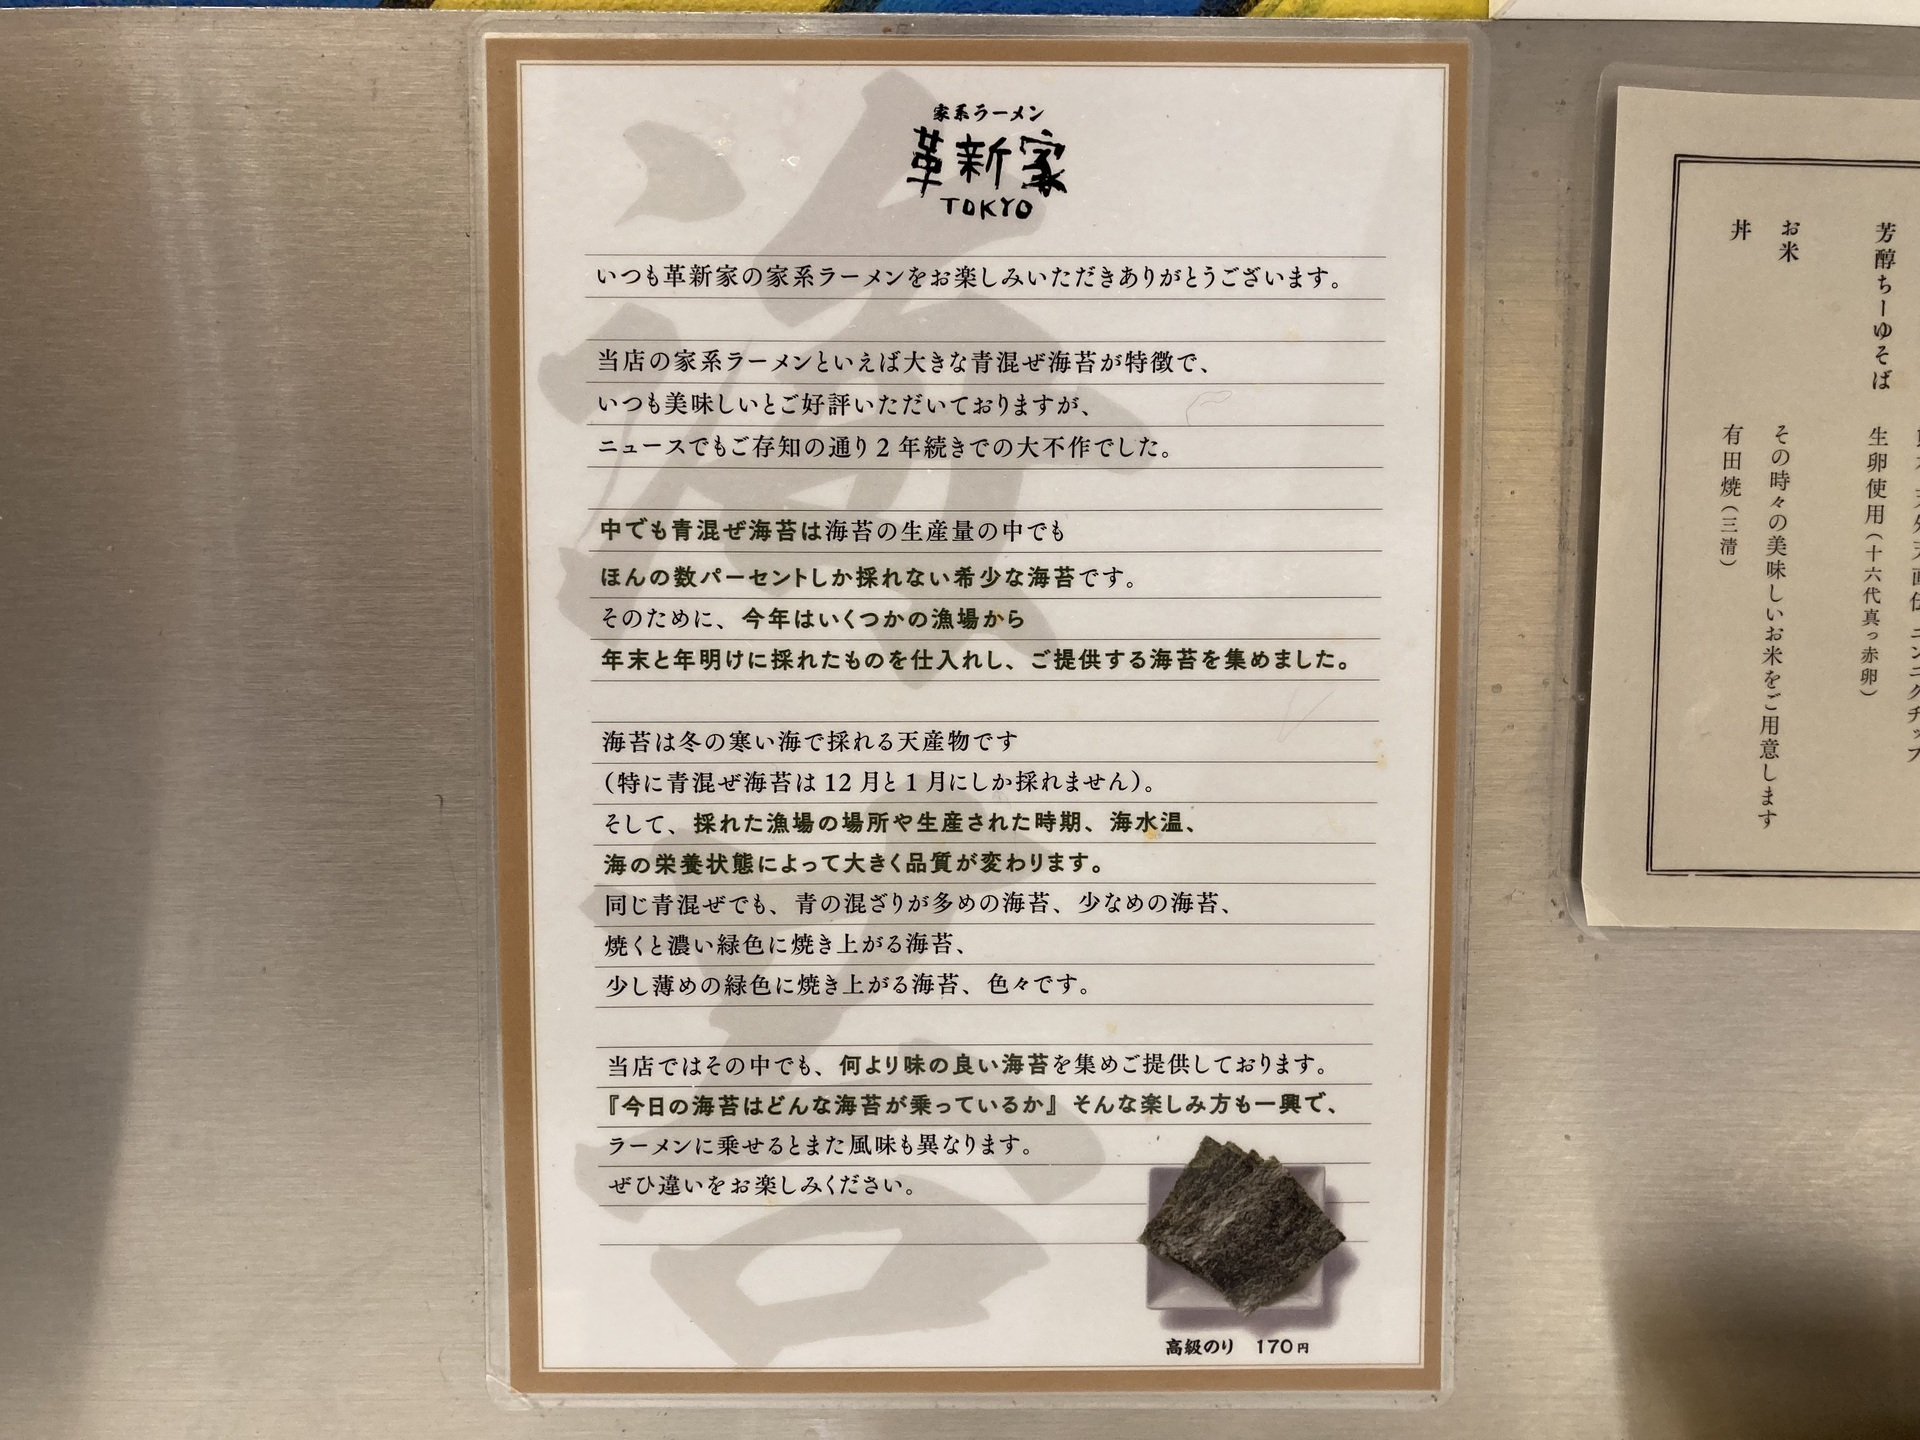 家系ラーメン
革新家
TOKYO
いつも革新家の家系ラーメンをお楽しみいただきありがとうございます。
当店の家系ラーメンといえば大きな青混ぜ海苔が特徴で、
いつも美味しいとご好評いただいておりますが、
ニュースでもご存知の通り2年続きでの大不作でした。
中でも青混ぜ海苔は海苔の生産量の中でも
ほんの数パーセントしか採れない希少な海苔です。
そのために、今年はいくつかの漁場から
年末と年明けに採れたものを仕入れし、ご提供する海苔を集めました。
海苔は冬の寒い海で採れる天産物です
(特に青混ぜ海苔は12月と1月にしか採れません)。
そして、採れた漁場の場所や生産された時期、海水温、
海の栄養状態によって大きく品質が変わります。
同じ青混ぜでも、青の混ざりが多めの海苔、少なめの海苔、
焼くと濃い緑色に焼き上がる海苔、
少し薄めの緑色に焼き上がる海苔、色々です。
当店ではその中でも、何より味の良い海苔を集めご提供しております。
『今日の海苔はどんな海苔が乗っているか』そんな楽しみ方も一興で、
ラーメンに乗せるとまた風味も異なります。
ぜひ違いをお楽しみください。
高級のり 170円
海苔
芳醇ちーゆそば 生卵使用(十六代真っ赤卵)
お米 その時々の美味しいお米をご用意します
丼 有田焼(三清)